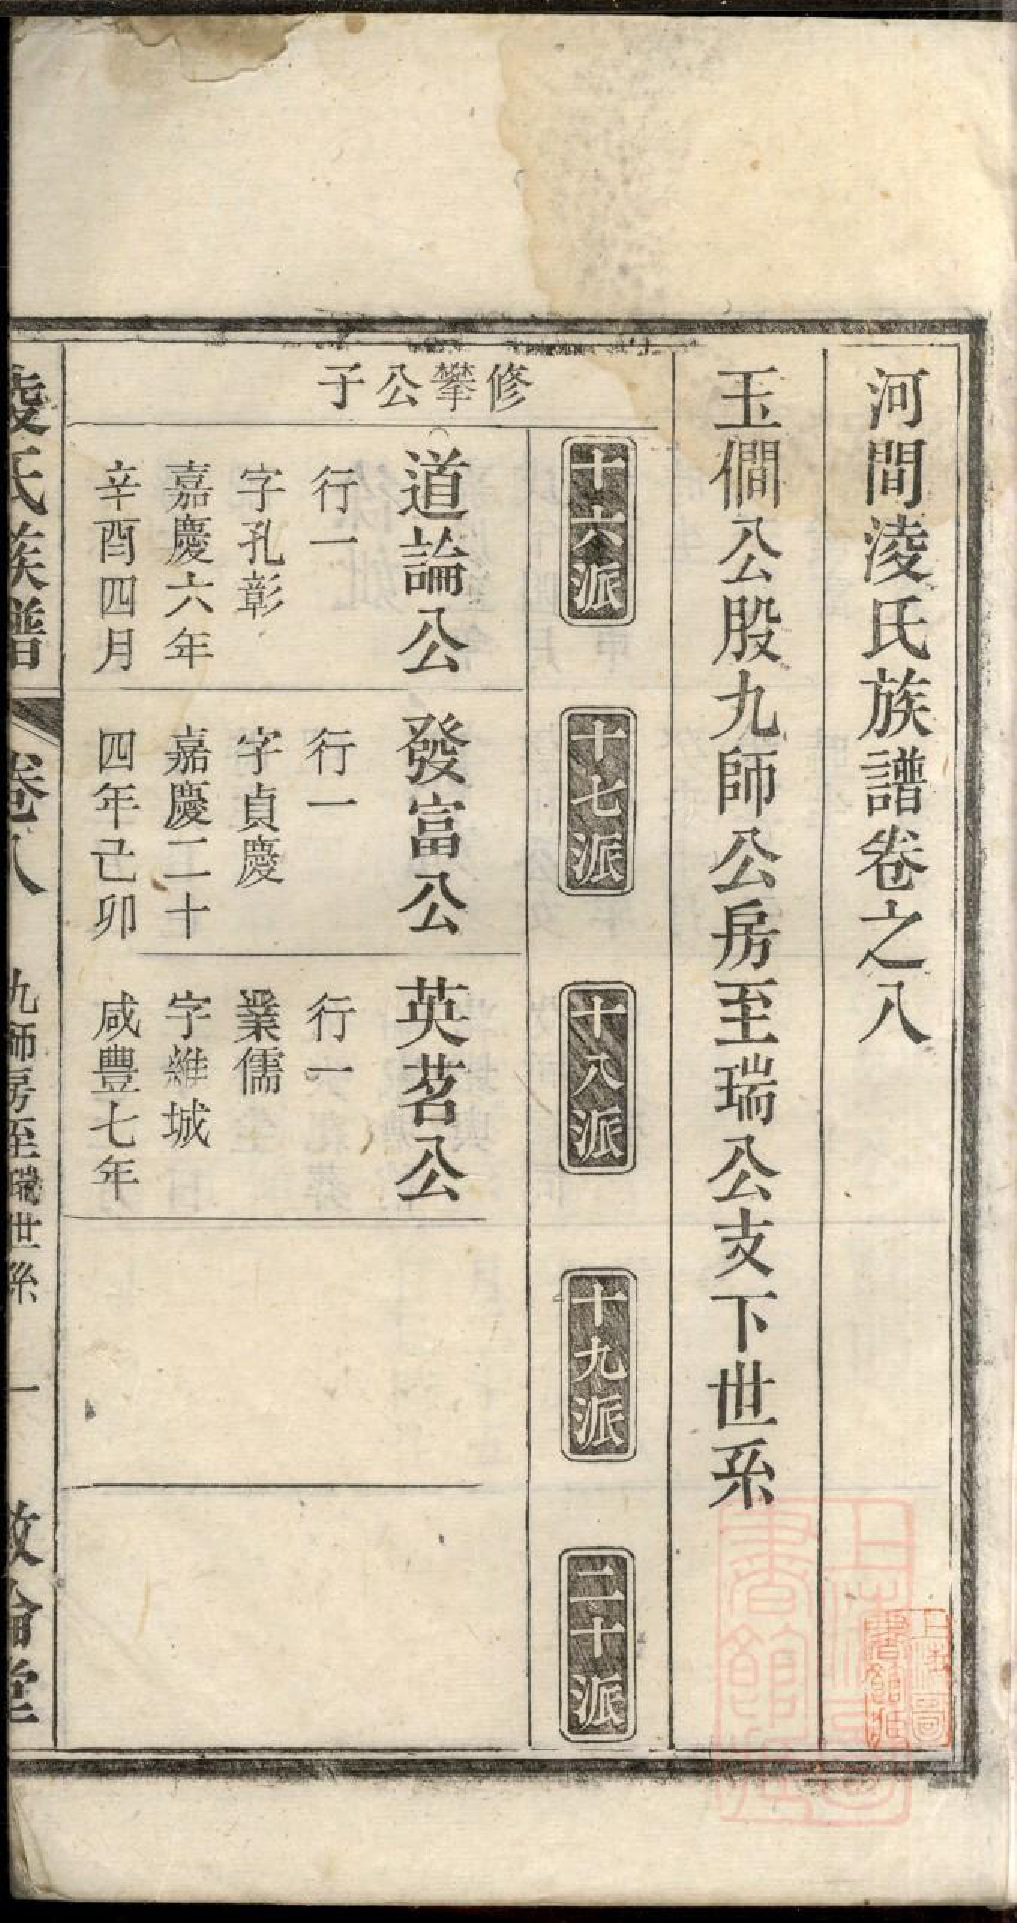 河間淩氏族譜卷之八
玉僩公股九師公房至瑞公支下世系
十六派
十七派
十八派
十九派
二十派
修攀公子
道論公
行一
字孔彰
嘉慶六年
辛酉四月
發富公
行一
字貞慶
嘉慶二十
四年己卯
英茗公
行一
業儒
字維城
咸豐七年
淩氏族譜
卷八
九師房至瑞世系
一
敦倫堂